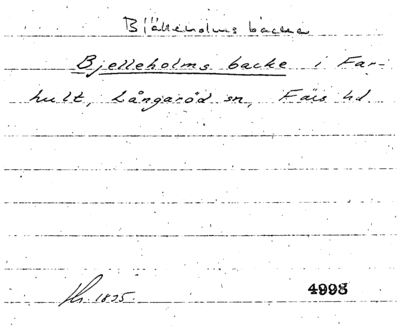 Bjälleholms backe
Bjelleholms backe i Far-
hult, Långaröd sn, Färs hd.
1835.
4993